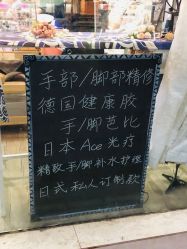 手部/脚部精修
德国健康胶
手/脚芭比
日本Ace光疗
精致手/脚补水护理
日式私人订制款